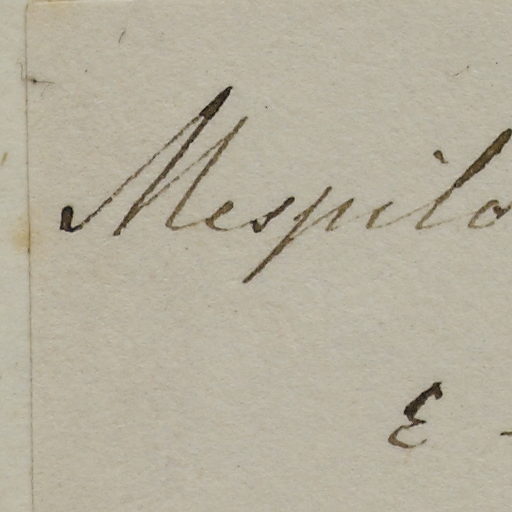 Mespilo
ε -